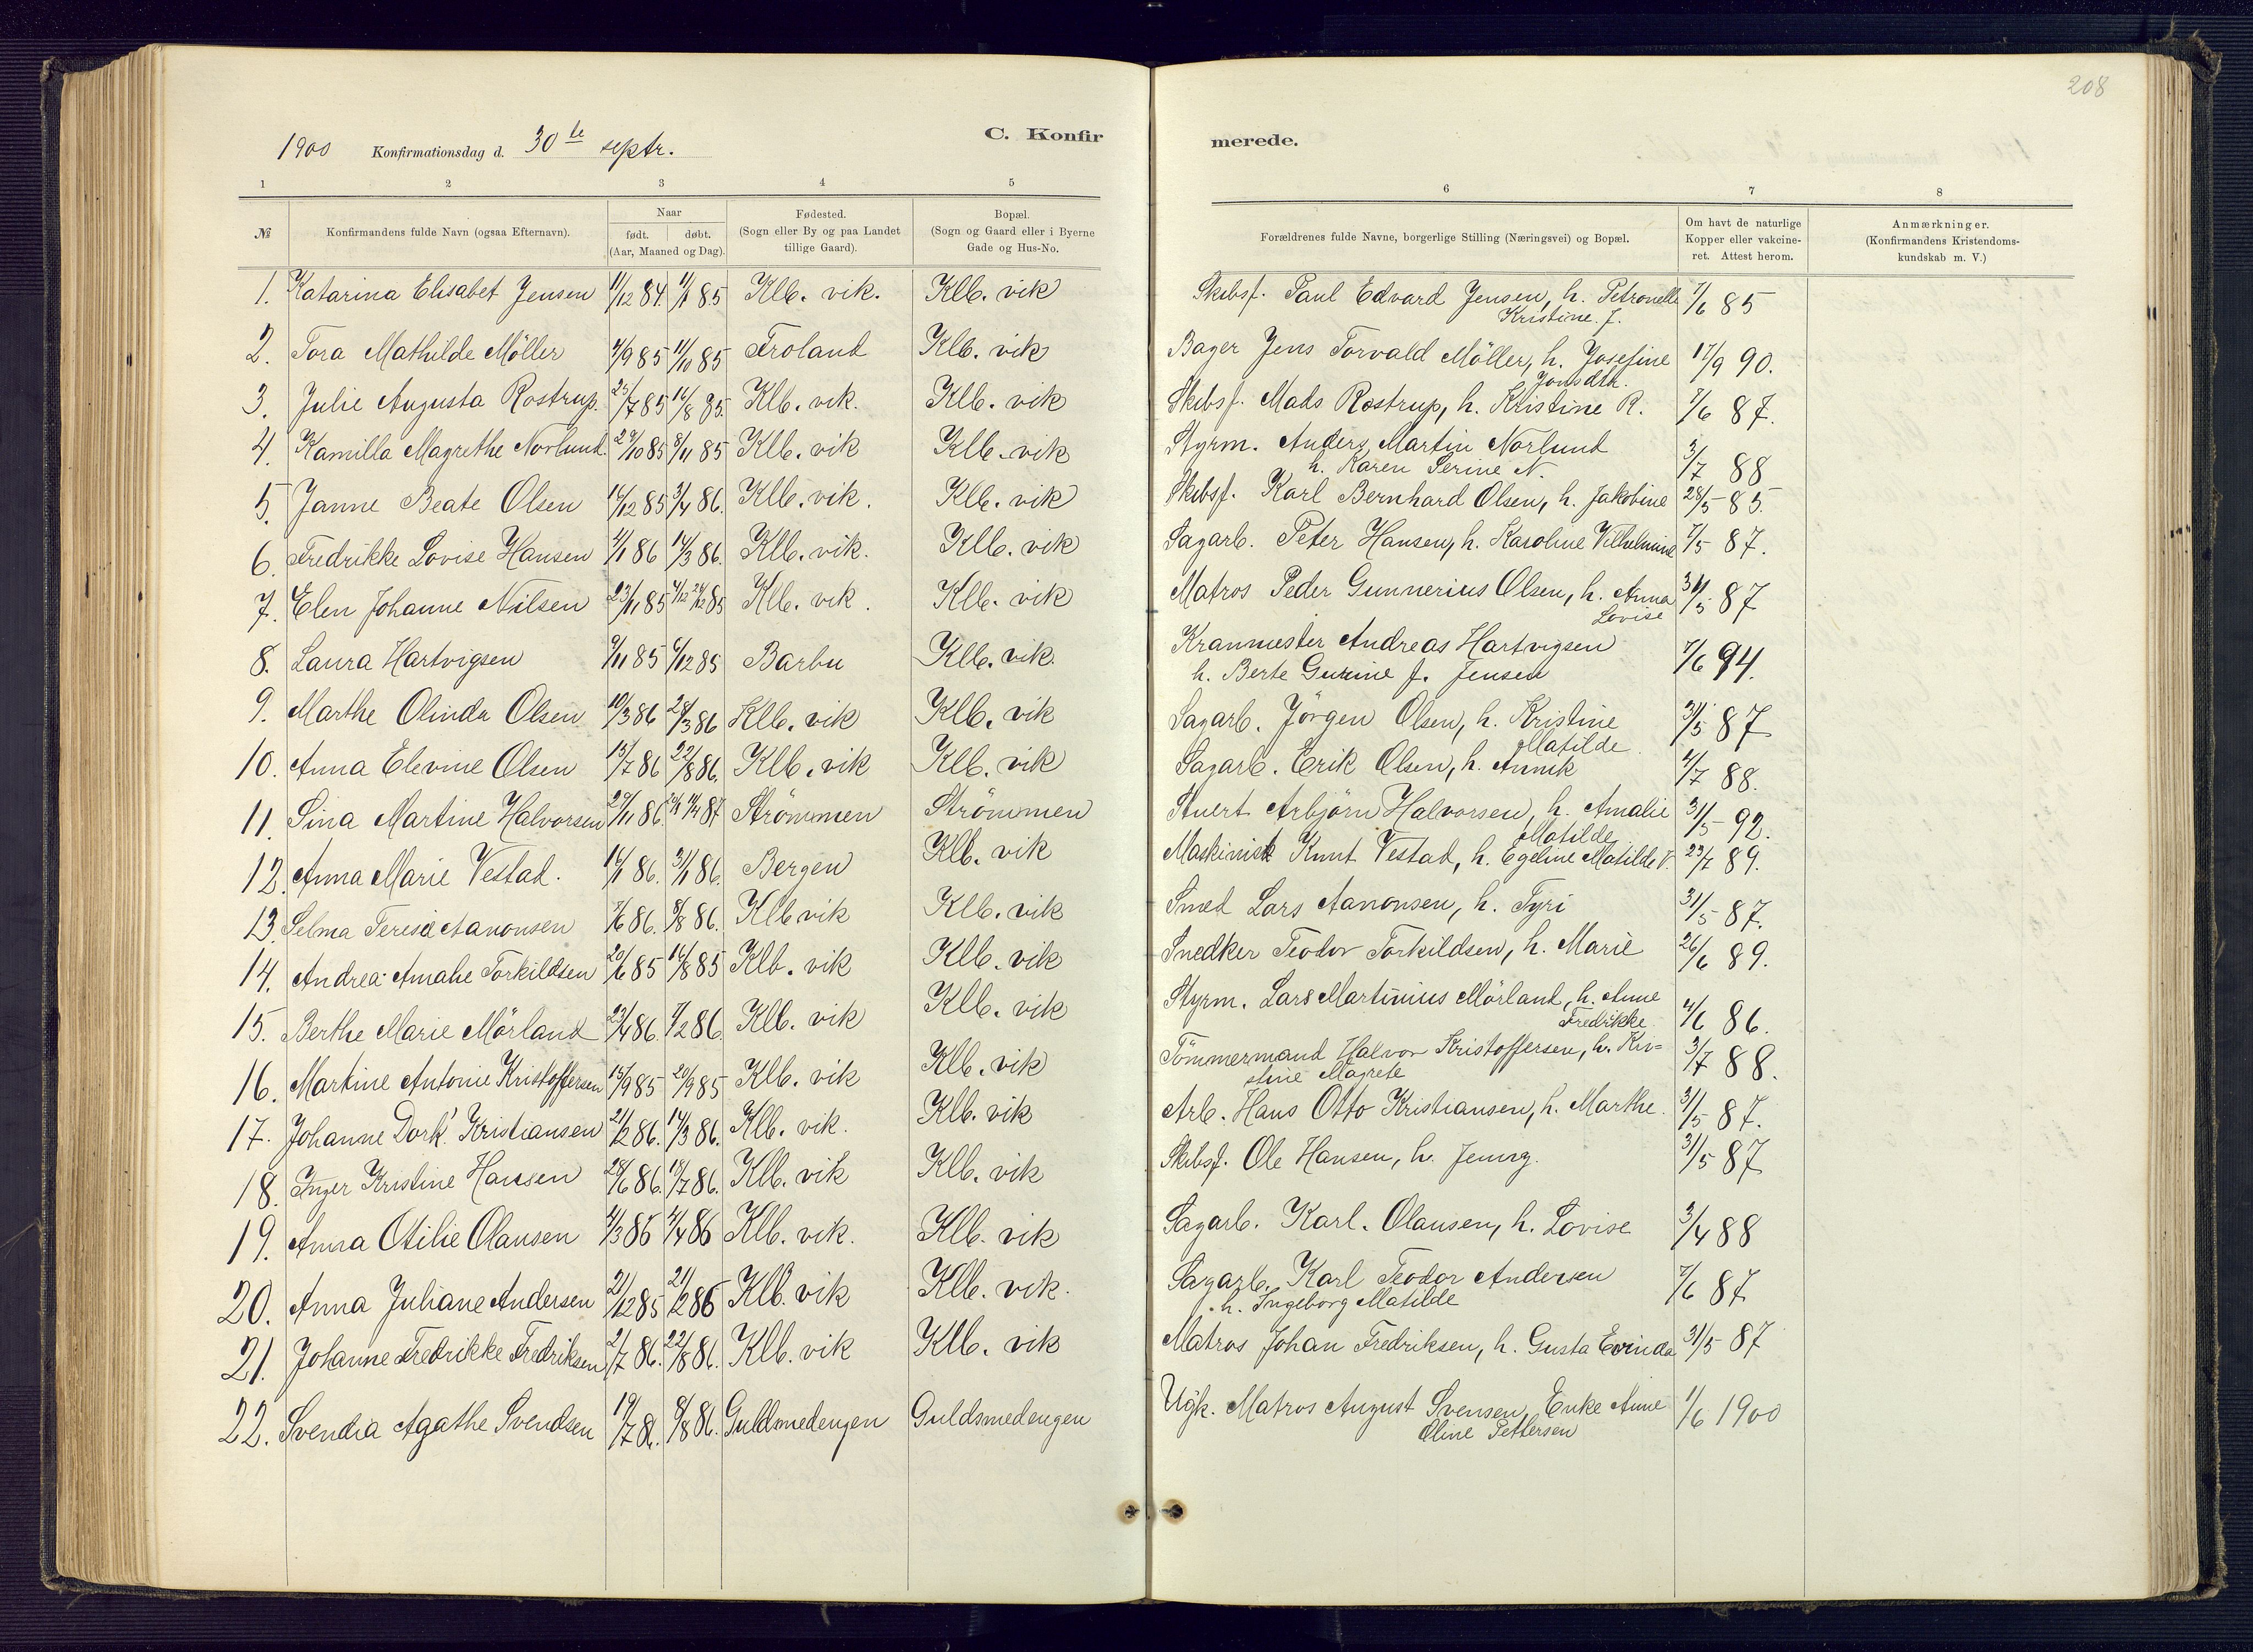 208
1900 Konfirmationsdag d. 30te septr.
C. Konfirmerede.
1 2 3 4 5 6 7 8
№ Konfirmandens fulde Navn (ogsaa Efternavn). Naar født. døbt. (Aar, Maaned og Dag). Fødested. (Sogn eller By og paa Landet tillige Gaard). Bopæl. (Sogn og Gaard eller i Byerne Gade og Hus-No. Forældrenes fulde Navne, borgerlige Stilling (Næringsvei) og Bopæl. Om havt de naturlige Kopper eller vakcineret. Attest herom. Anmærkninger. (Konfirmandens Kristendomskundskab m. V.)
1. Katarina Elisabet Jensen 11/12 84. 11/1 85 Klb. vik. Klb. vik Skibsf. Paul Edvard Jensen, h. Petronelle Kristine J. 7/6 85
2. Tora Mathilde Möller 4/9 85 11/10 85 Froland Klb. vik Bager Jens Torvald Möller, h. Josefine Jonsdtr. 17/9 90.
3. Julie Augusta Rostrup. 25/7 85 16/8 85. Klb. vik. Klb. vik Skibsf. Mads Rostrup, h. Kristine R. 7/6 87.
4. Kamilla Magrethe Norlund. 29/10 85 8/11 85 Klb. vik Klb. vik Styrm. Anders Martin Norlund h. Karen Serine N. 3/7 88
5. Janne Beate Olsen 14/12 85 3/4 86. Klb. vik. Klb. vik Skibsf. Karl Bernhard Olsen, h. Jakobine 28/5 85.
6. Fredrikke Lovise Hansen 4/1 86 14/3 86. Klb. vik. Klb. vik Sagarb. Peter Hansen, h. Karoline Vilhelmine 7/5 87.
7. Elen Johanne Nilsen 23/11 85 4/12 26/12 85 Klb. vik. Klb. vik Matros Peder Gunnerius Olsen, h. Anna Lovise 31/5 87
8. Laura Hartvigsen 9/11 85 6/12 85 Barbu Klb. vik. Kranmester Andreas Hartvigsen h. Berte Gurine f. Jensen 7/6 94.
9. Marthe Olinda Olsen 10/3 86 28/3 86 Klb. vik Klb. vik Sagarb. Jörgen Olsen, h. Kristine Matilde 31/5 87
10. Anna Elevine Olsen 15/7 86 22/8 86. Klb. vik Klb. vik Sagarb. Erik Olsen, h. Annik 4/7 88.
11. Sina Martine Halvorsen 29/11 86. 11/4 87 Strömmen Strömmen Stuert Arbjörn Halvorsen, h. Amalie Matilde 31/5 92.
12. Anna Marie Vestad. 16/1 86. 31/1 86. Bergen Klb. vik Maskinist Knut Vestad, h. Egeline Matilde V. 23/7 89.
13. Selma Terese Aanonsen 7/6 86. 8/8 86. Klb vik Klb. vik Smed Lars Aanonsen, h. Tyri 31/5 87.
14. Andrea Amalie Torkildsen 20/6 85 16/8 85 Klb. vik Klb. vik Snedker Teodor Torkildsen, h. Marie 26/6 89.
15. Berthe Marie Mörland 23/4 86. 7/2 86. Klb. vik Klb. vik Styrm. Lars Martinius Mörland, h. Anne Fredrikke 4/6 86.
16. Martine Antonie Kristoffersen 15/9 85 20/9 85 Klb. vik Klb. vik Tömmermand Halvor Kristoffersen, h. Kristine Magrete 3/7 88.
17. Johanne Dork. Kristiansen 21/2 86. 14/3 86. Klb. vik. Klb. vik Arb. Hans Otto Kristiansen, h. Marthe 31/5 87.
18. Inger Kristine Hansen 28/6 86. 18/7 86. Klb. vik Klb. vik Skibsf. Ole Hansen, h. Jenny. 31/5 87
19. Anna Otilie Olausen 4/3 86 4/4 86 Klb. vik. Klb. vik Sagarb. Karl. Olausen, h. Lovise 3/4 88
20. Anna Juliane Andersen 21/12 85 21/2 86 Klb. vik Klb. vik. Sagarb. Karl Teodor Andersen h. Ingeborg Matilde 7/6 87
21. Johanne Fredrikke Fredriksen 2/7 86. 22/8 86. Klb. vik Klb. vik Matros Johan Fredriksen, h. Gusta Evinda 31/5 87
22. Svendia Agathe Svendsen 19/7 86. 8/8 86. Guldsmedengen Guldsmedengen Ugk. Matros August Svensen, Enke Anne Oline Pettersen 1/6 1900